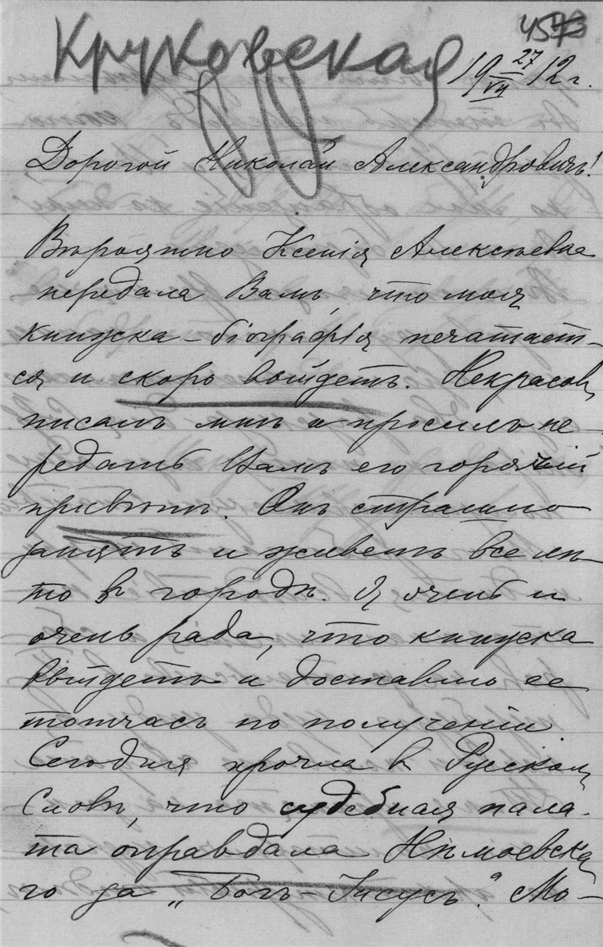 457
Круковская
19 27/VII 12 г.
Дорогой Николай Александровичъ!
Вѣроятно Ксенія Алексѣевна
передала Вамъ, что моя
книжка-біографія печатает-
ся и скоро выйдетъ. Некрасовъ
писалъ мнѣ и просилъ пе-
редать Вамъ его горячій
привѣтъ. Онъ страшно
занятъ и живетъ все лѣ-
то в городѣ. Я очень и
очень рада, что книжка
выйдетъ и доставлю ее
тотчасъ по полученіи
Сегодня прочла в Русском
Словѣ, что судебная пала-
та оправдала Нѣмоевска
го за „Богъ Іисусъ". Мо-